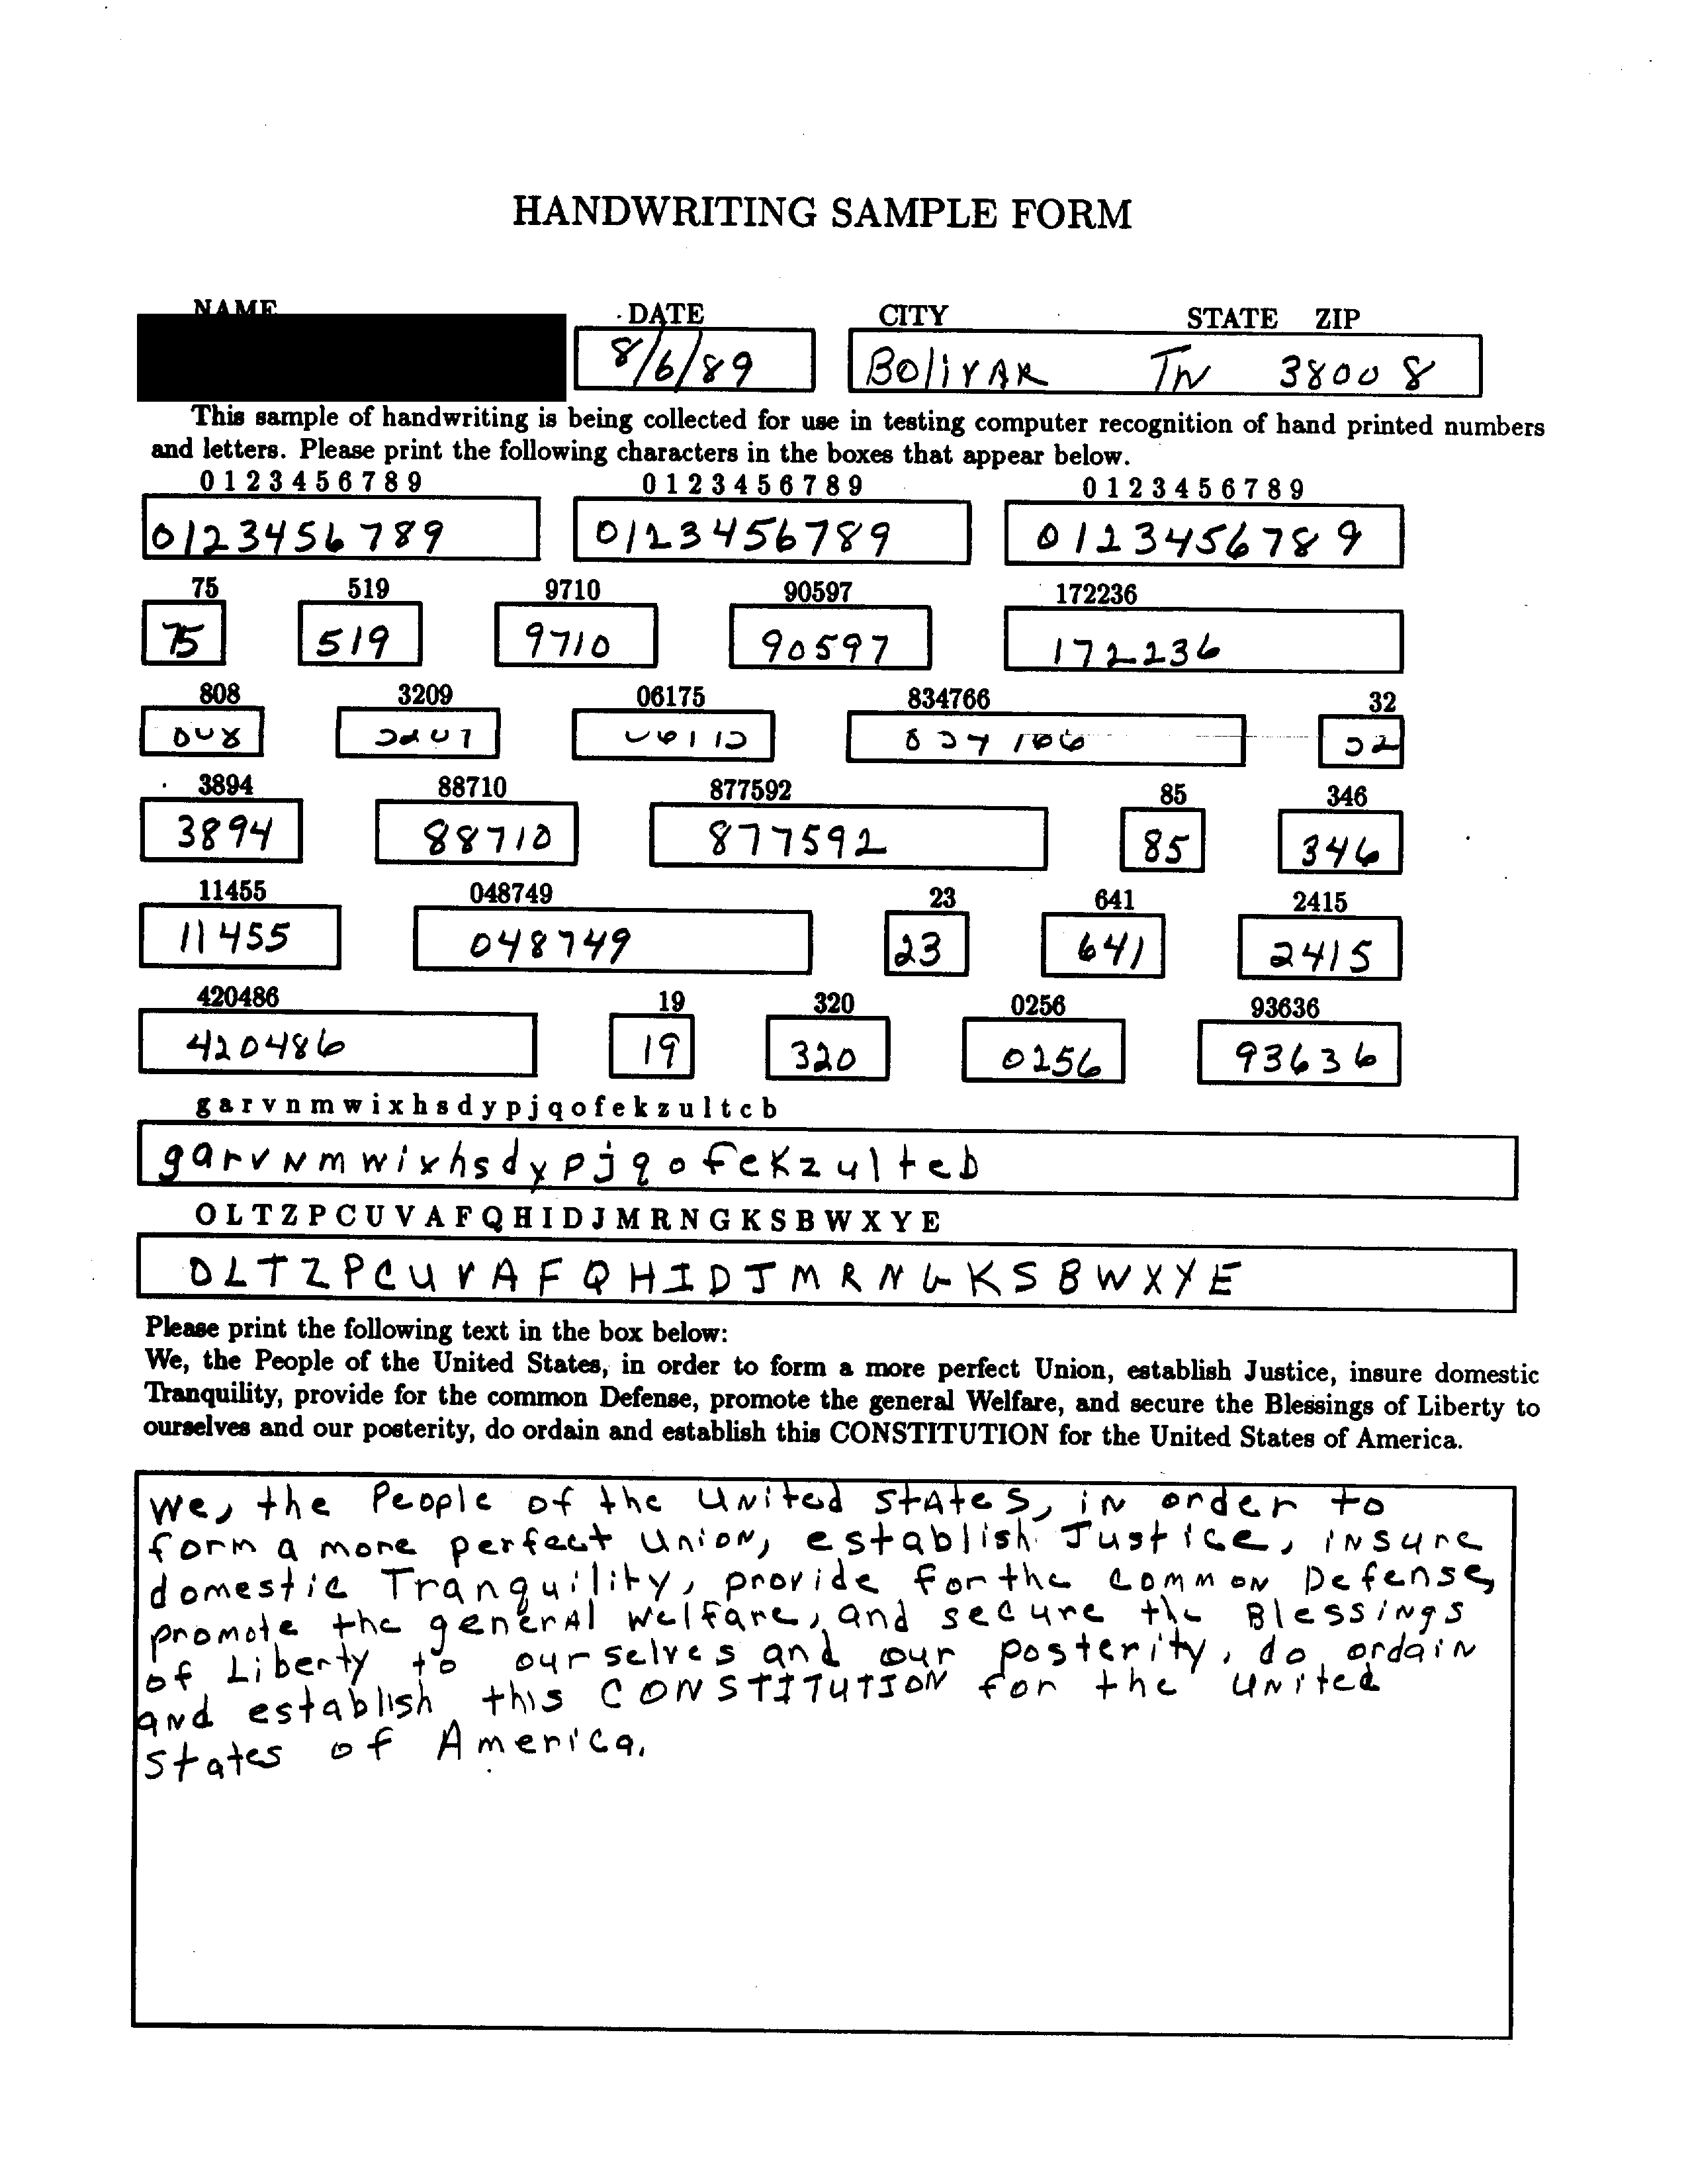 HANDWRITING SAMPLE FORM
NAME DATE CITY STATE ZIP
8/6/89 BolivAR TN 38008
This sample of handwriting is being collected for use in testing computer recognition of hand printed numbers
and letters. Please print the following characters in the boxes that appear below.
0 1 2 3 4 5 6 7 8 9 0 1 2 3 4 5 6 7 8 9 0 1 2 3 4 5 6 7 8 9
0123456789 0123456789 0123456789
75 519 9710 90597 172236
75 519 9710 90597 172236
808 3209 06175 834766 32
3894 88710 877592 85 346
3894 88710 877592 85 346
11455 048749 23 641 2415
11455 048749 23 641 2415
420486 19 320 0256 93636
420486 19 320 0256 93636
g a r v n m w i x h s d y p j q o f e k z u l t c b
g a r v N m w i x h s d y p j q o f e K z u l t c b
O L T Z P C U V A F Q H I D J M R N G K S B W X Y E
O L T Z P C U V A F Q H I D J M R N G K S B W X Y E
Please print the following text in the box below:
We, the People of the United States, in order to form a more perfect Union, establish Justice, insure domestic
Tranquility, provide for the common Defense, promote the general Welfare, and secure the Blessings of Liberty to
ourselves and our posterity, do ordain and establish this CONSTITUTION for the United States of America.
We, the People of the UNited StAtes, iN order to
form a more perfect UnioN, establish Justice, iNsure
domestic Tranquility, provide for the commoN Defense,
promote the generAl Welfare, and secure the BlessiNgs
of Liberty to ourselves and our posterity, do ordaiN
aNd establish this CONSTITUTION for the UNited
States of America.